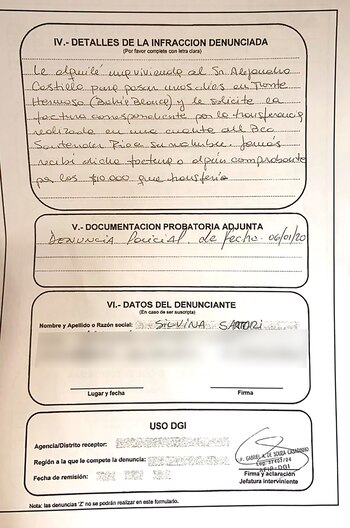 IV.- DETALLES DE LA INFRACCION DENUNCIADA
(Por favor complete con letra clara)
Le alquilé una vivienda al Sr. Alejandro
Castillo para pasar unos días en Monte
Hermoso (Bahía Blanca) y le solicite la
factura correspondiente por la transferencia
realizada en una cuenta del Bco
Santander Río a su nombre. Jamás
recibí dicha factura o algún comprobante
por los $10.000 que transferí
V.- DOCUMENTACION PROBATORIA ADJUNTA
DENUNCIA POLICIAL. de fecho. 06/01/20
VI.- DATOS DEL DENUNCIANTE
(En caso de ser suscripta)
Nombre y Apellido o Razón social: SILVINA SARTORI
Lugar y fecha Firma
USO DGI
Agencia/Distrito receptor:
Región a la que le compete la denuncia:
Fecha de remisión:
AFIP-DGI
Firma y aclaración
Jefatura interviniente
Nota: las denuncias "Z" no se podrán realizar en este formulario.